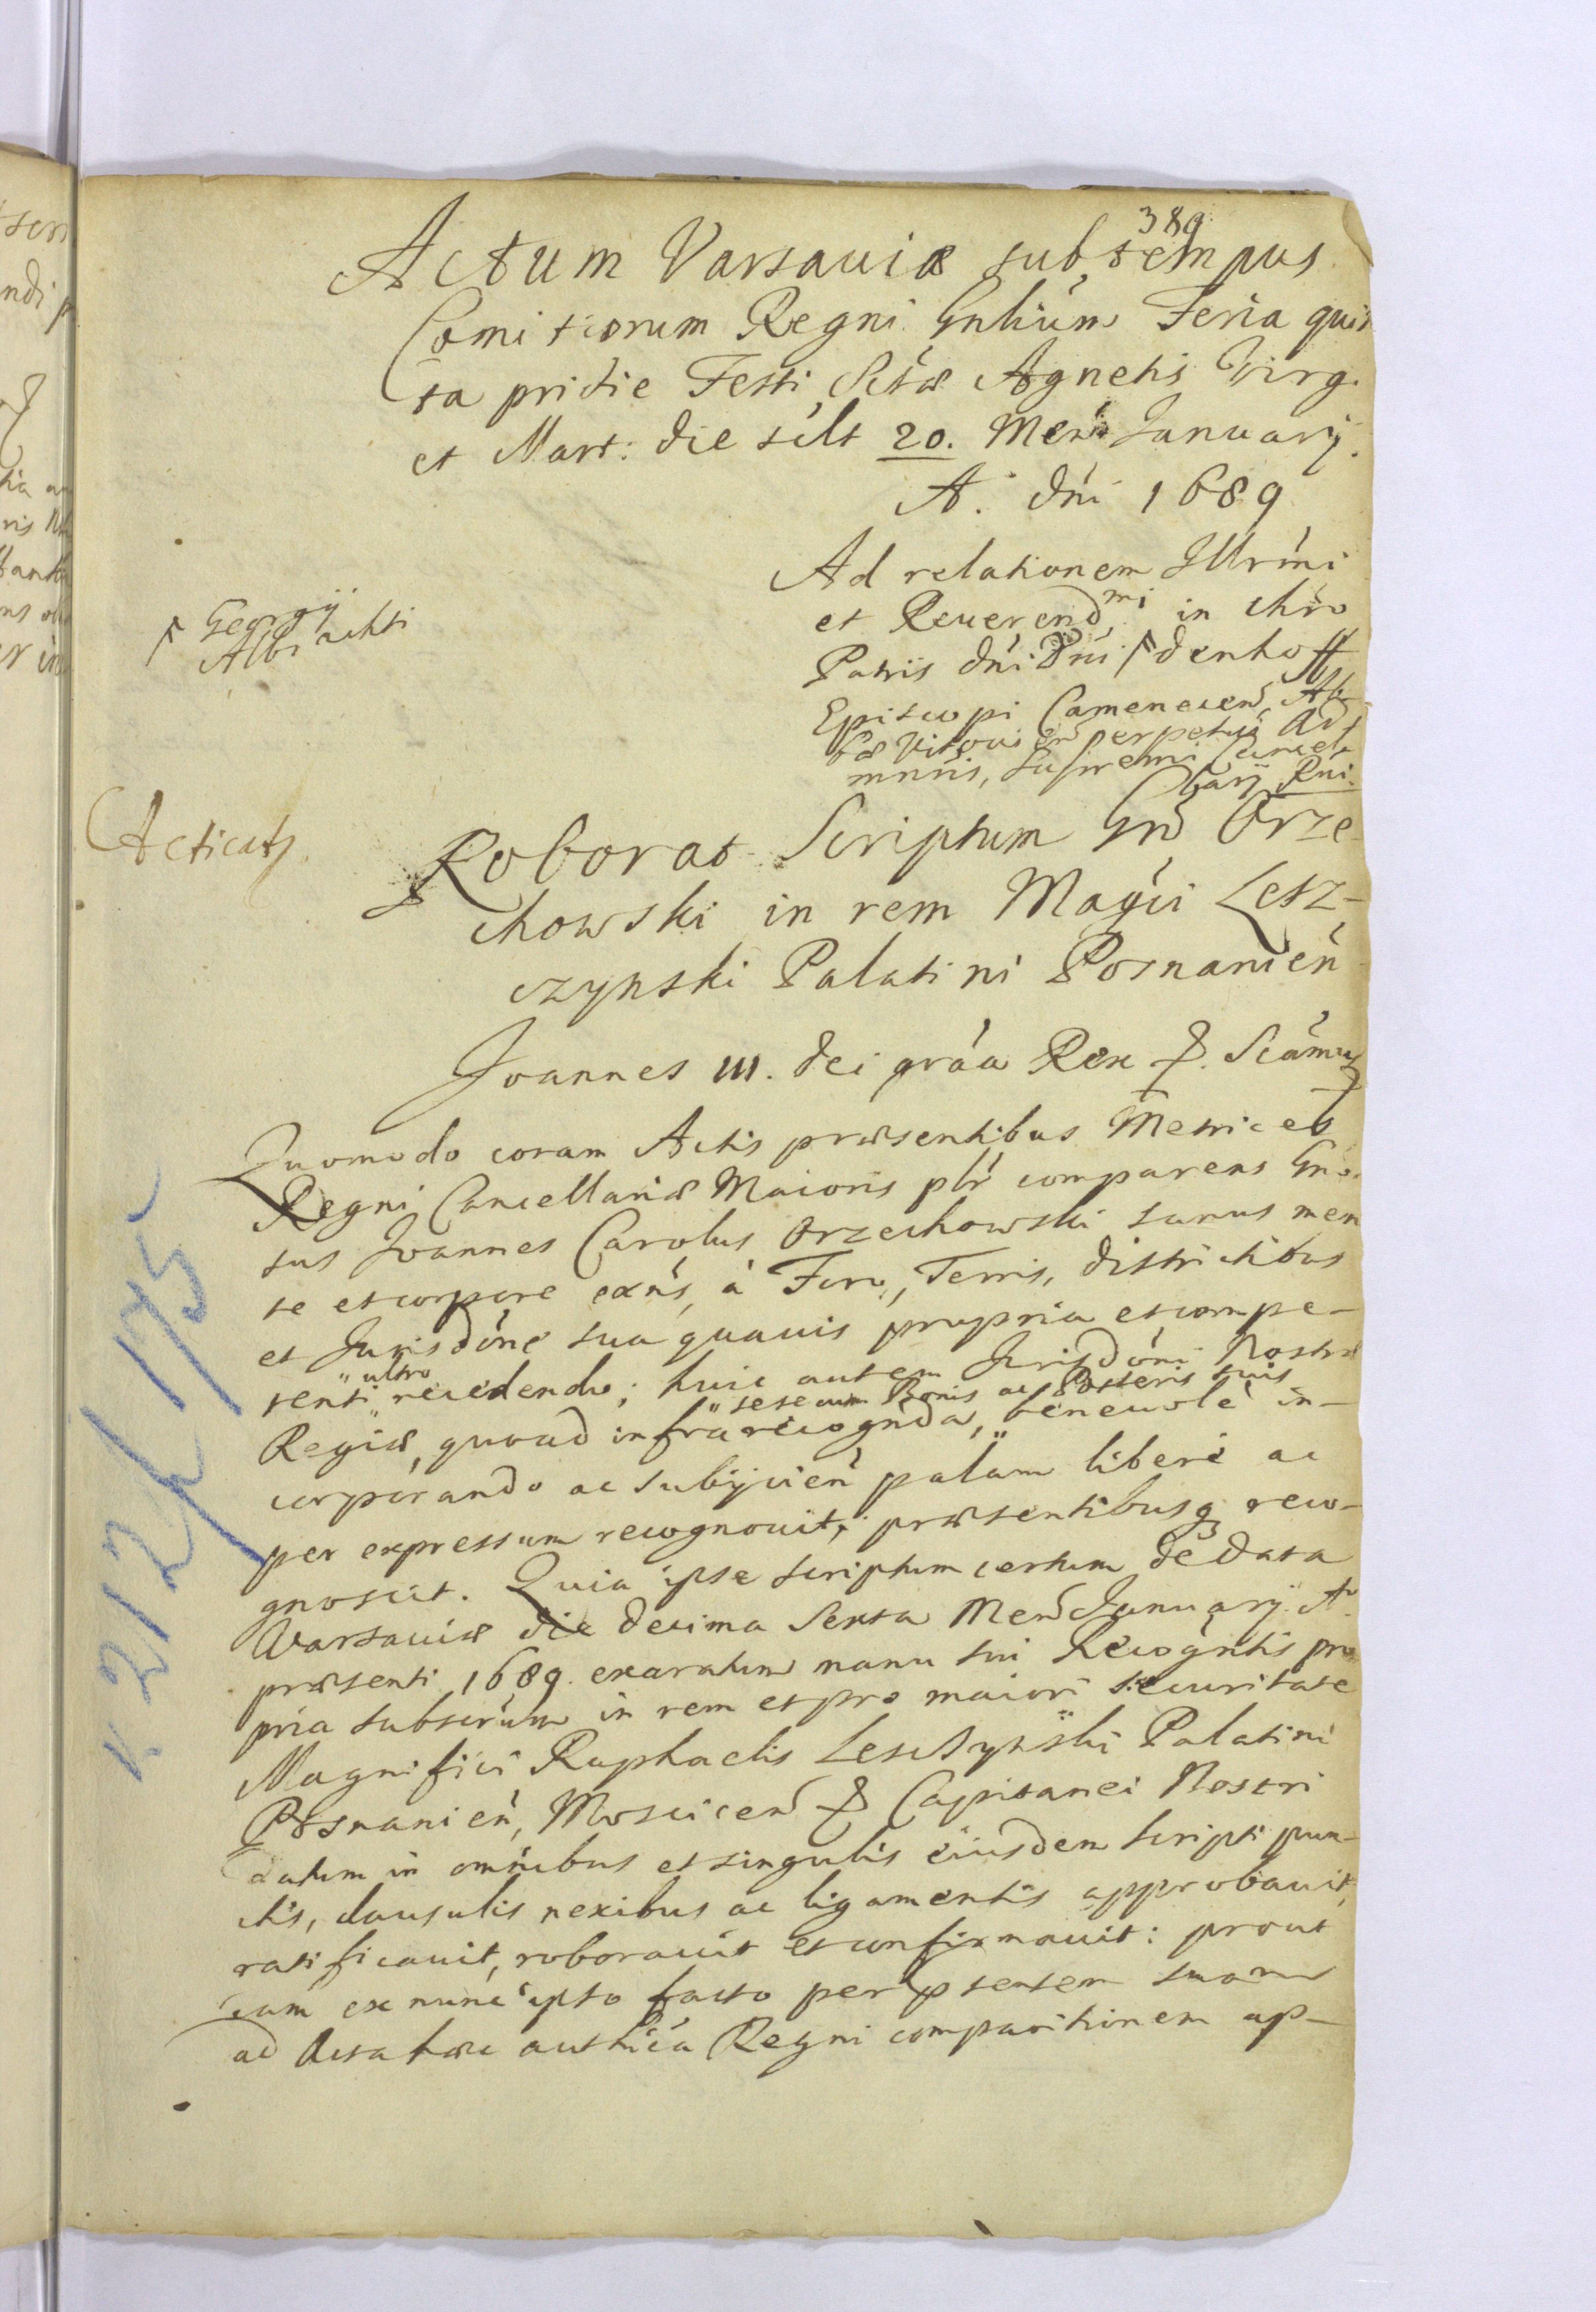 389
Actum Varsaviæ sub tempus
Comitiorum Regni Gnlium Feria quin
ta pridie Festi Sctæ Agnetis Virg.
et Mart: die sclt 20. Mens Januarij.
A. dni 1689
Ad relationem Illrmi
et Reverendmi in Chro
Patris dni Dni Denhoff
Georgij
Albrachti
Episcopi Camenecen, Ab-
bæ perpetui Ad
mnris, Supremi Cancel-
larij Rni.
Acticat
Roborat Scriptum Gnd Orze
chowski in rem Magci Lesz-
czynski Palatini Posnanien
Joannes III. Dei gráa Rex
Quomodo coram Actis præsentibus Metrices
Regni Cancellariæ Maioris plr comparens Gno
sus Joannes Carolus Orzechowski sanus men
te et corpore exns, à Foro, Terris, districtibus
et Jurisdóne sua quavis propria et compe-
tenti ultro recedendo; huic autem Jurisdóni Nostræ
Regiæ, quoad infra recognda, sese cum Bonis ac Posteris suis benevolè in-
corporando ac subijcien palam liberè ac
per expressum recognovit, præsentibusq reco-
gnoscit. Quia ipse scriptum certum de data
Varsaviæ die decima Sexta Mens Januarij Ao
præsenti 1689. exaratum manu sui Recogntis pro
pria subscrum in rem et pro maiori securitate
Magnifici Raphaelis Lesczynski Palatini
Posnanien, Moscicen & Capitanei Nostri
datum in omnibus et singulis eiusdem scripti pun-
ctis, clausulis nexibus ac ligamentis approbavit,
ratificavit, roboravit et confirmavit: prout
iam ex nunc ipso facto per psentem suam
ad Acta hæc authca Regni comparitionem ap-